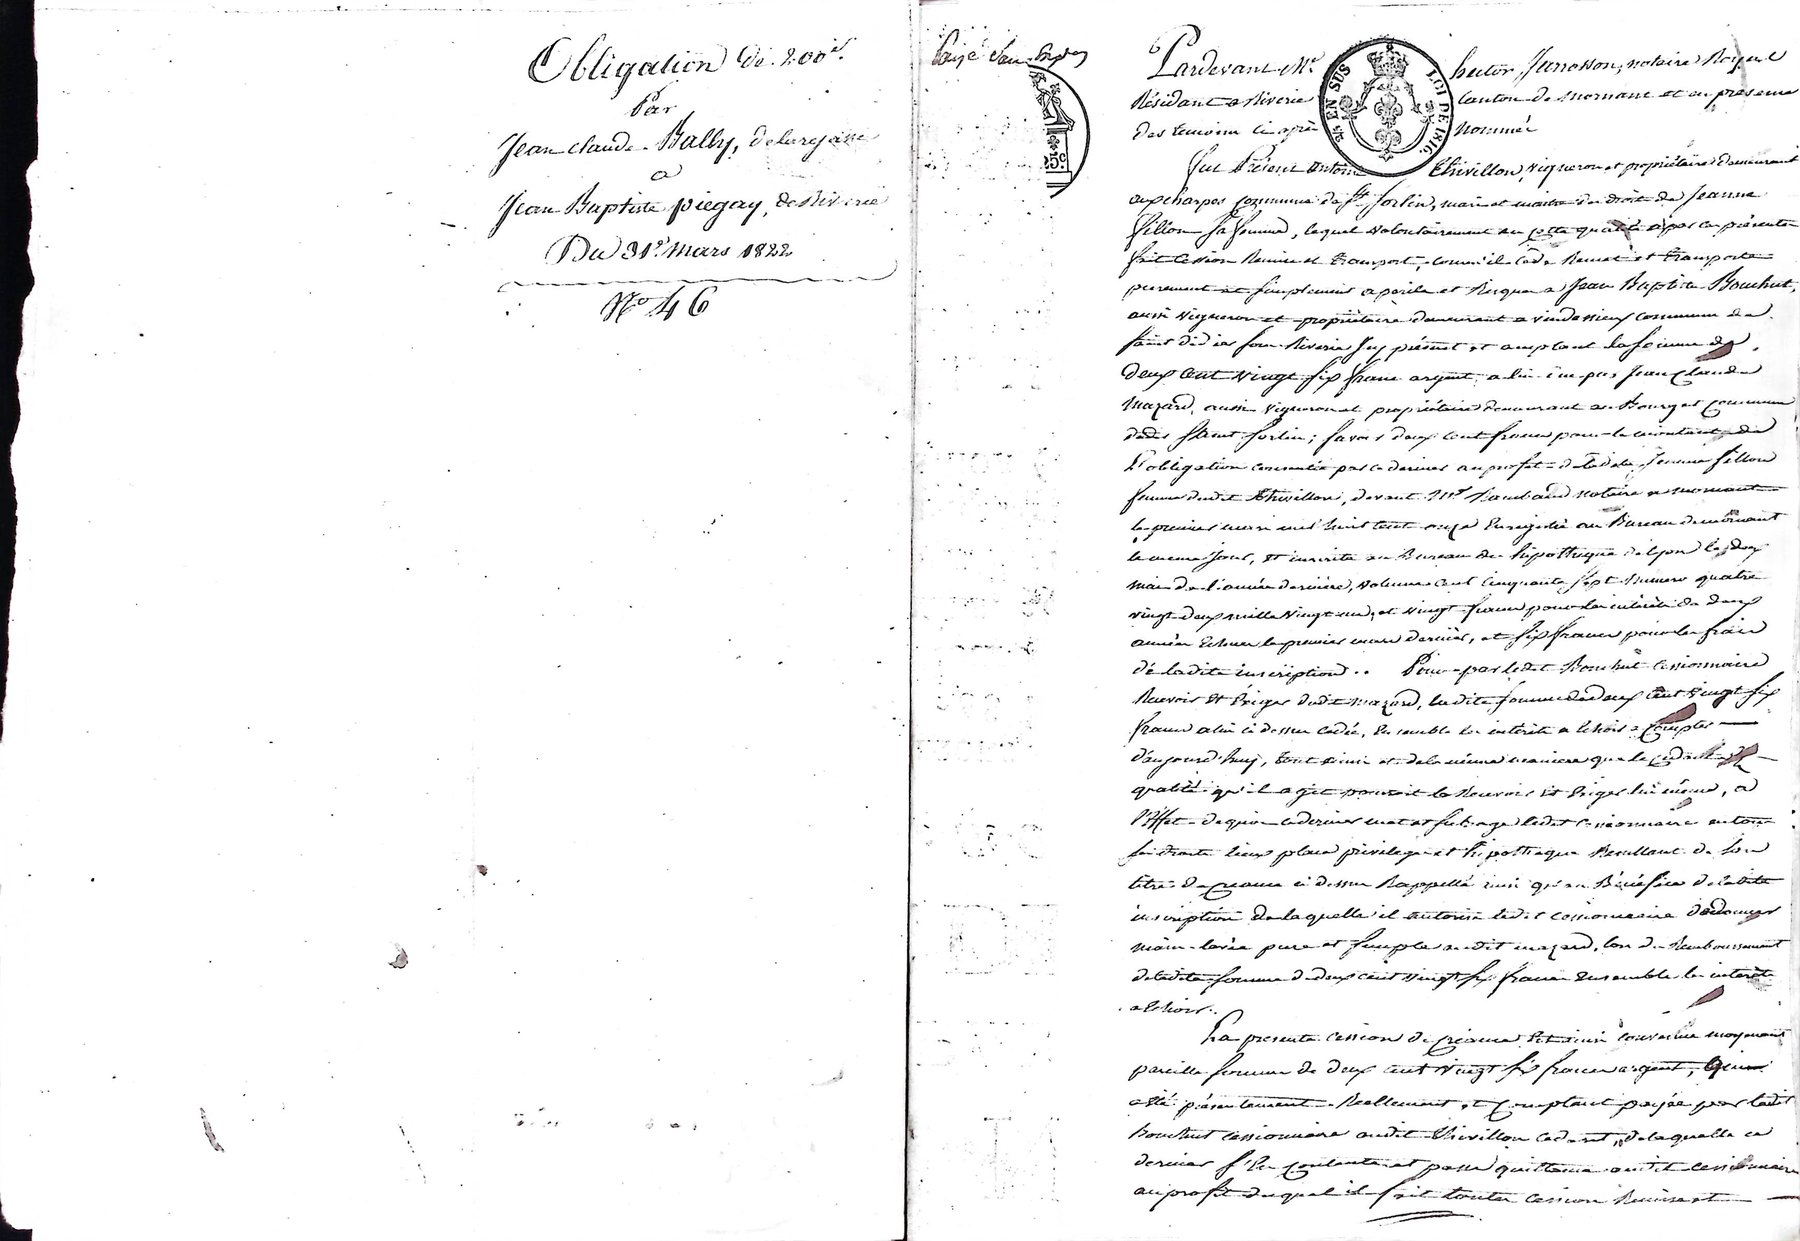 Obligation de 200f.
Par
Jean Claude Bally, de larajasse
a
Jean Baptiste piegay, de Riverie
Du 31e. Mars 1822
No 46
25c.
EN SUS
LOI DE 1816.
Pardevant Me. hector, notaire Royal
Résidant a Riverie Canton de Mornant et en presence
des temoins ci après Nommés
fut Présent antoine thivillon, vigneron et propriétaire demeurant
commune de St. Sorlin, mari et maitre des droits de Jeanne
fillon sa femme, lequel volontairement en cette qualité a par ces présentes
fait Cession Remise et transport, comme il cede Remet et transporte
purement et simplement a perils et Risques a Jean Baptiste Bouchut,
aussi vigneron et propriétaire demeurant a commune de
saint didier sous Riverie Icy présent et acceptant la somme de
deux cent vingt six francs argent, a lui due par Jean Claude
Mazard, aussi vigneron et propriétaire demeurant au Bourg et commune
dudit saint Sorlin; savoir deux cent francs pour le montant de
l'obligation consentie par ce dernier au profit de ladite Jeanne fillon
femme dudit thivillon, devant Me notaire a mornant
le premier mars mil huit cent onze Enregistré au Bureau de mornant
le meme jour, et inscrite au Bureau des hipotheques de lyon le deux
mars de l'année derniere, volume cent cinquante sept Numero quatre
vingt deux mille vingt un, et vingt francs pour les intérêts de deux
années Echues le premier mars dernier, et six francs pour les frais
de ladite inscription.. Pour par ledit Bouchut cessionnaire
Recevoir Et Exiger dudit mazard, ladite somme de deux cent vingt six
francs a lui ci dessus cedée, Ensemble les intérêts a Echoir a Compter
d'aujourd'huy, tout ainsi et de la même maniere que le cedant En
qualité qu'il agit pouvait la Recevoir Et Exiger lui même, a
l'Effet de quoi ce dernier met et subroge ledit cessionnaire en tous
ses droits lieux place privilege et hipotheque Resultant de son
titre de creance ci dessus Rappellé ainsi qu'au Bénéfice de ladite
inscription de laquelle il autorise ledit cessionnaire de donner
main-levée pure et simple audit mazard, lors du Remboursement
de ladite somme de deux cent vingt six francs Ensemble les intérêts
a Echoir.
La presente cession de creance Est ainsi convenue moyennant
pareille somme de deux cent vingt six francs argent, qui
a été présentement Reellement et Comptant payée par ledit
Bouchut cessionnaire audit thivillon cedant, de laquelle ce
dernier s'En contente et passe quittance audit cessionnaire
au profit duquel il fait toutes cession Remise et